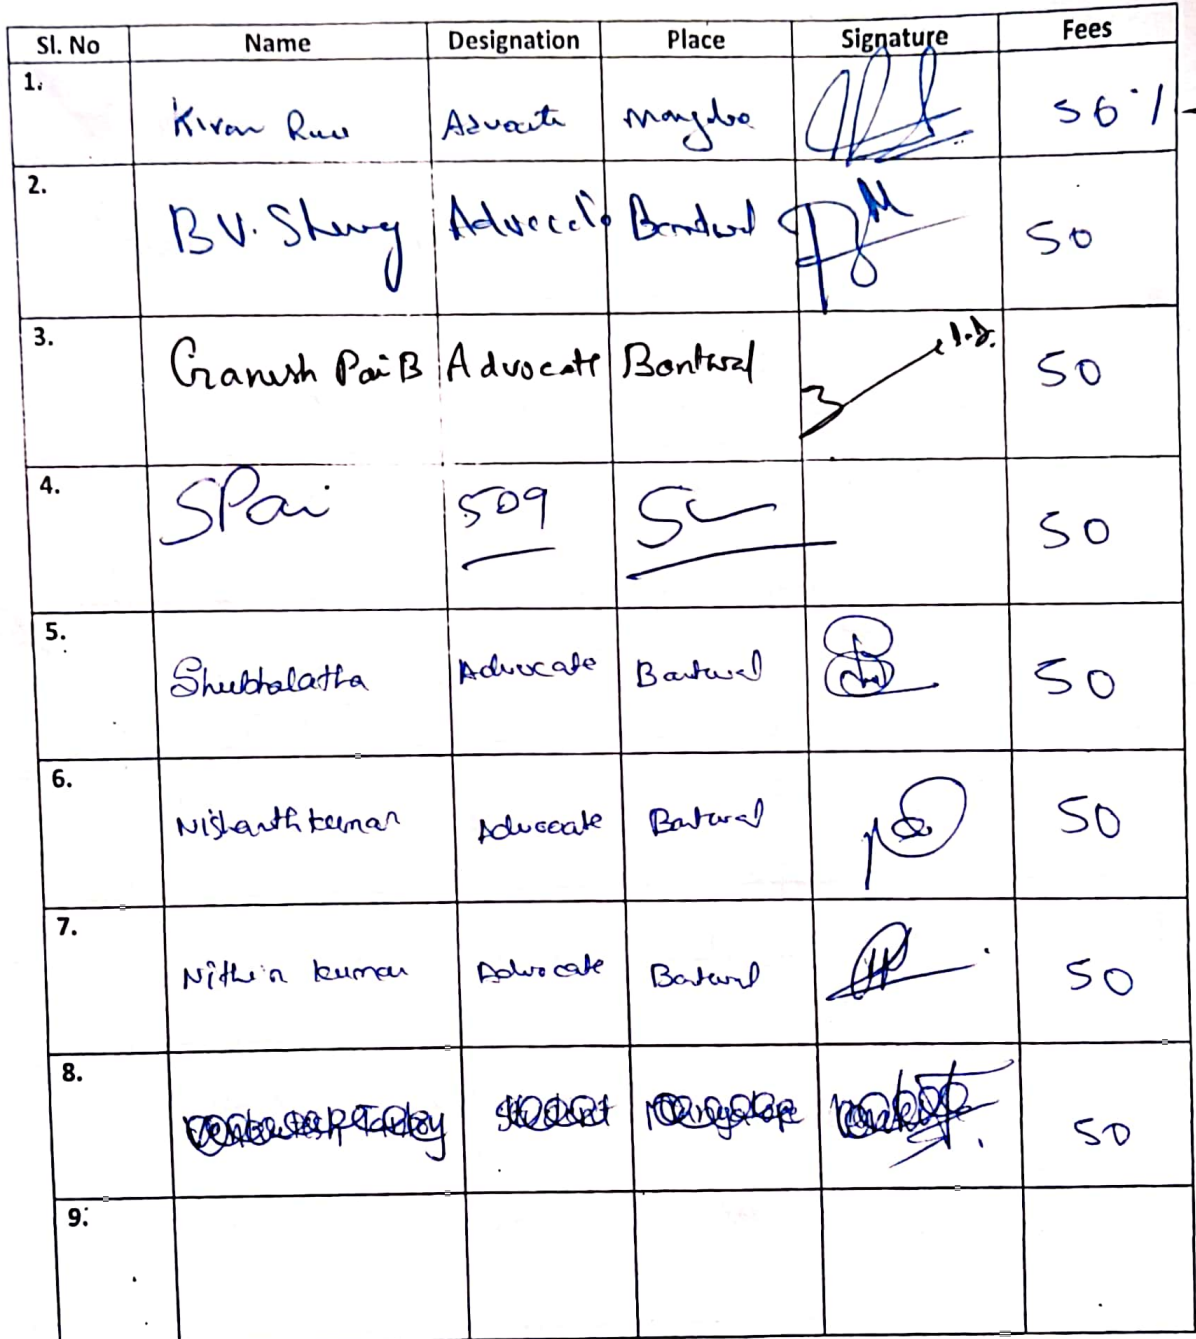 Sl. No Name Designation Place Signature Fees
1. Kiran Advocate 50·/-
2. B V. Advocate Bantwal 50
3. Ganesh Pai B Advocate Bantwal 50
4. SPai 509 50
5. Shubhalatha Advocate Bantwal 50
6. Nishanth kumar Advocate Bantwal 50
7. Nithin kumar Advocate Bantwal 50
8. 50
9.